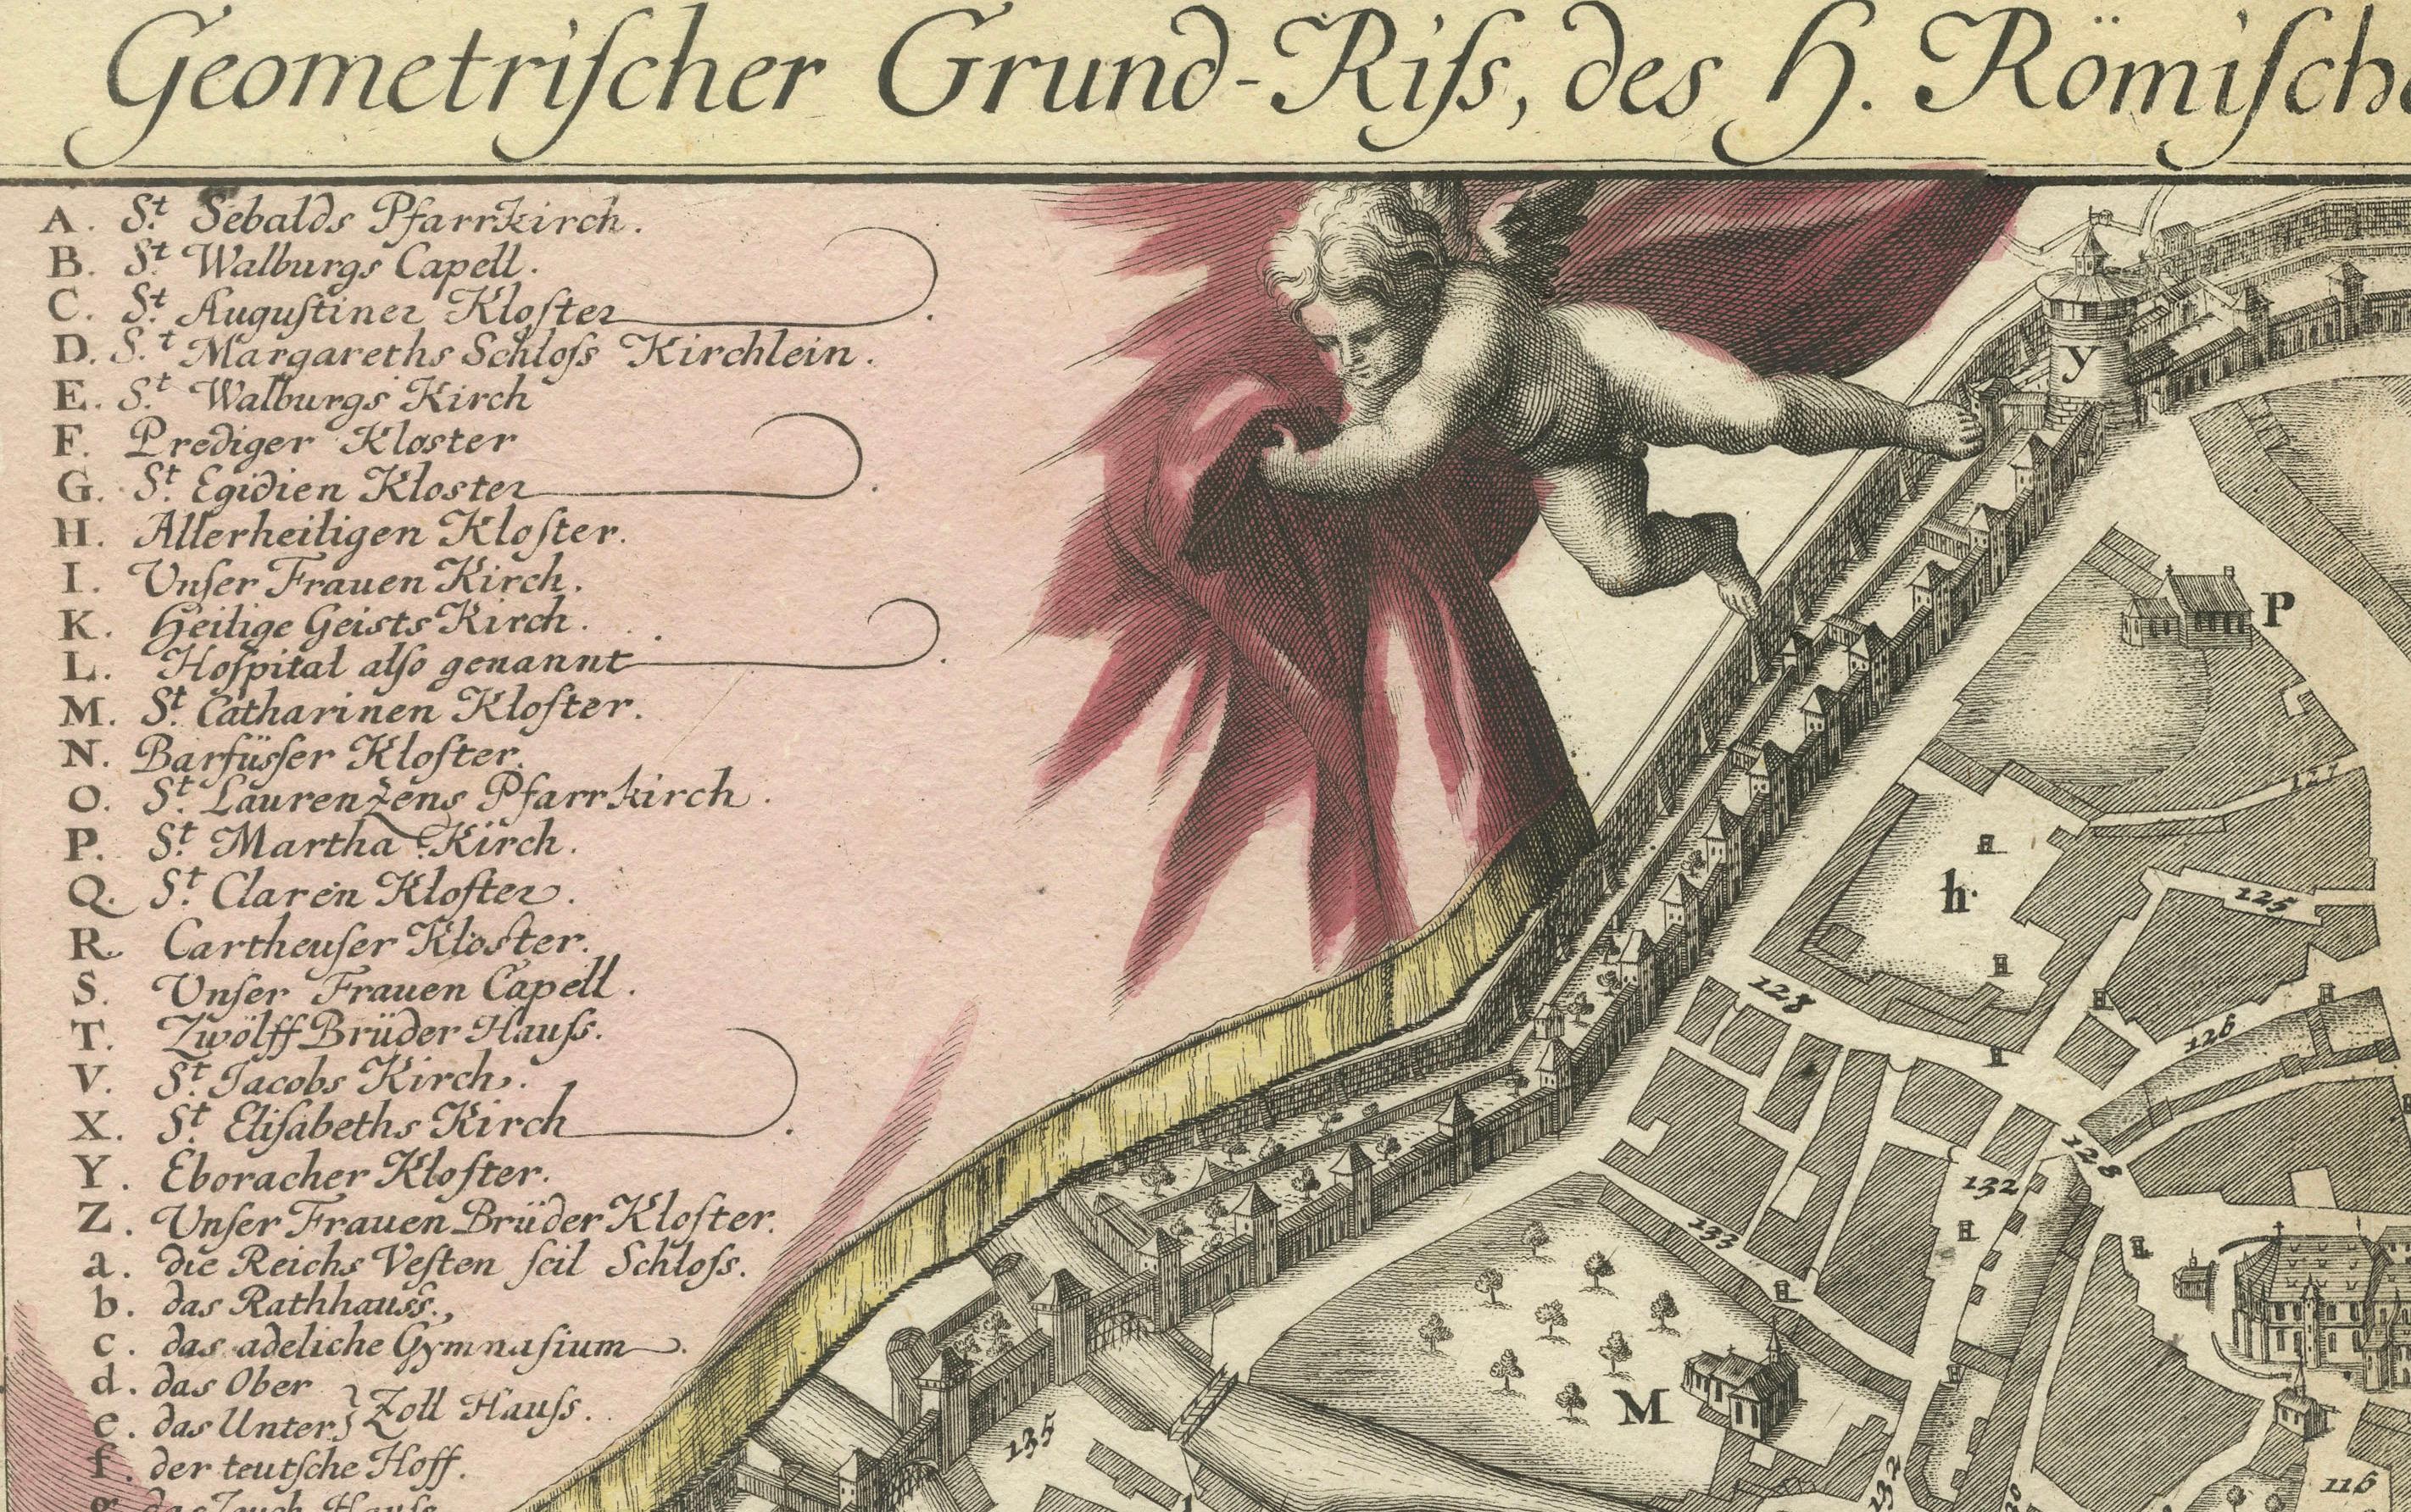 Geometriſcher Grund-Riſs, des H. Römiſche
A. St. Sebalds Pfarrkirch.
B. St. Walburgs Capell.
C. St. Auguſtiner Kloſter.
D. St. Margareths Schloſs Kirchlein.
E. St. Walburgs Kirch
F. Prediger Kloster
G. St. Egidien Kloster.
H. Allerheiligen Kloſter.
I. Vnſer Frauen Kirch.
K. Heilige Geists Kirch.
L. Hoſpital alſo genannt.
M. St. Catharinen Kloſter.
N. Barfüſſer Kloſter.
O. St. Laurenzens Pfarrkirch.
P. St. Martha Kirch.
Q. St. Claren Kloſter.
R. Cartheuſer Kloster.
S. Vnſer Frauen Capell.
T. Zwölff Brüder Hauſs.
V. St. Jacobs Kirch.
X. St. Eliſabeths Kirch.
Y. Eboracher Kloſter.
Z. Vnſer Frauen Brüder Kloſter.
a. die Reichs Veſten ſcil Schloſs.
b. das Rathhauss.
c. das adeliche Gymnaſium.
d. das Ober
e. das Unter } Zoll Hauſs.
f. der teutſche Hoff.
g. das Zeuch Hauſs
y
P
127
h.
125
128
126
128
132
133
M
135
132
116